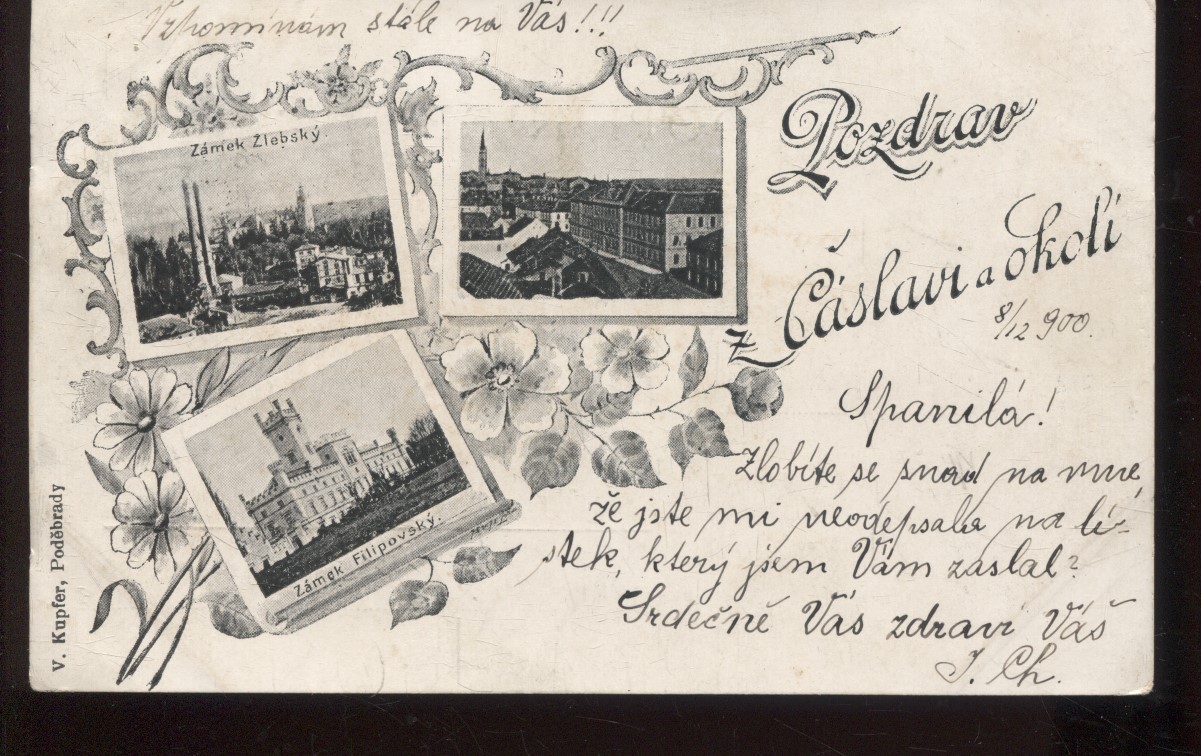 Vzpomínám stále na Vás!!!
Zámek Žlebský.
Pozdrav
z Čáslavi a okolí
8/12 900.
Spanilá!
Zlobíte se snad na mne,
že jste mi neodepsala na lí-
stek, který jsem Vám zaslal?
Srdečně Vás zdraví Váš
J. Ch.
Zámek Filipovský.
V. Kupfer, Poděbrady